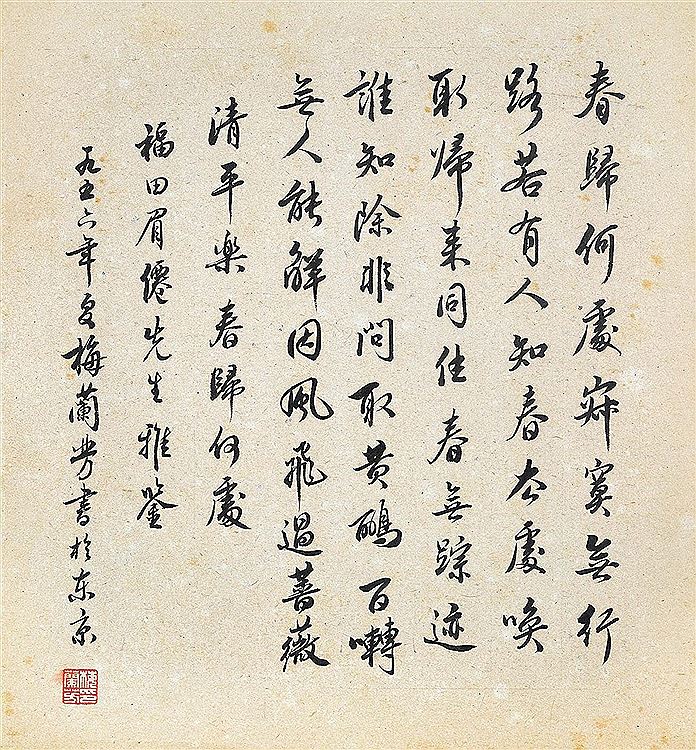 春歸何處寂寞無行
路若有人知春去處喚
取歸来同住春無踪迹
誰知除非問取黄鸝百囀
無人能解因風飛過薔薇
清平楽春歸何處
福田眉僊先生雅鑒
一九五六年夏梅蘭芳書於东京
梅印蘭芳